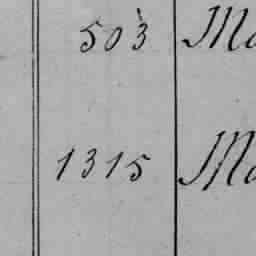 503 Ma
1315 Ma